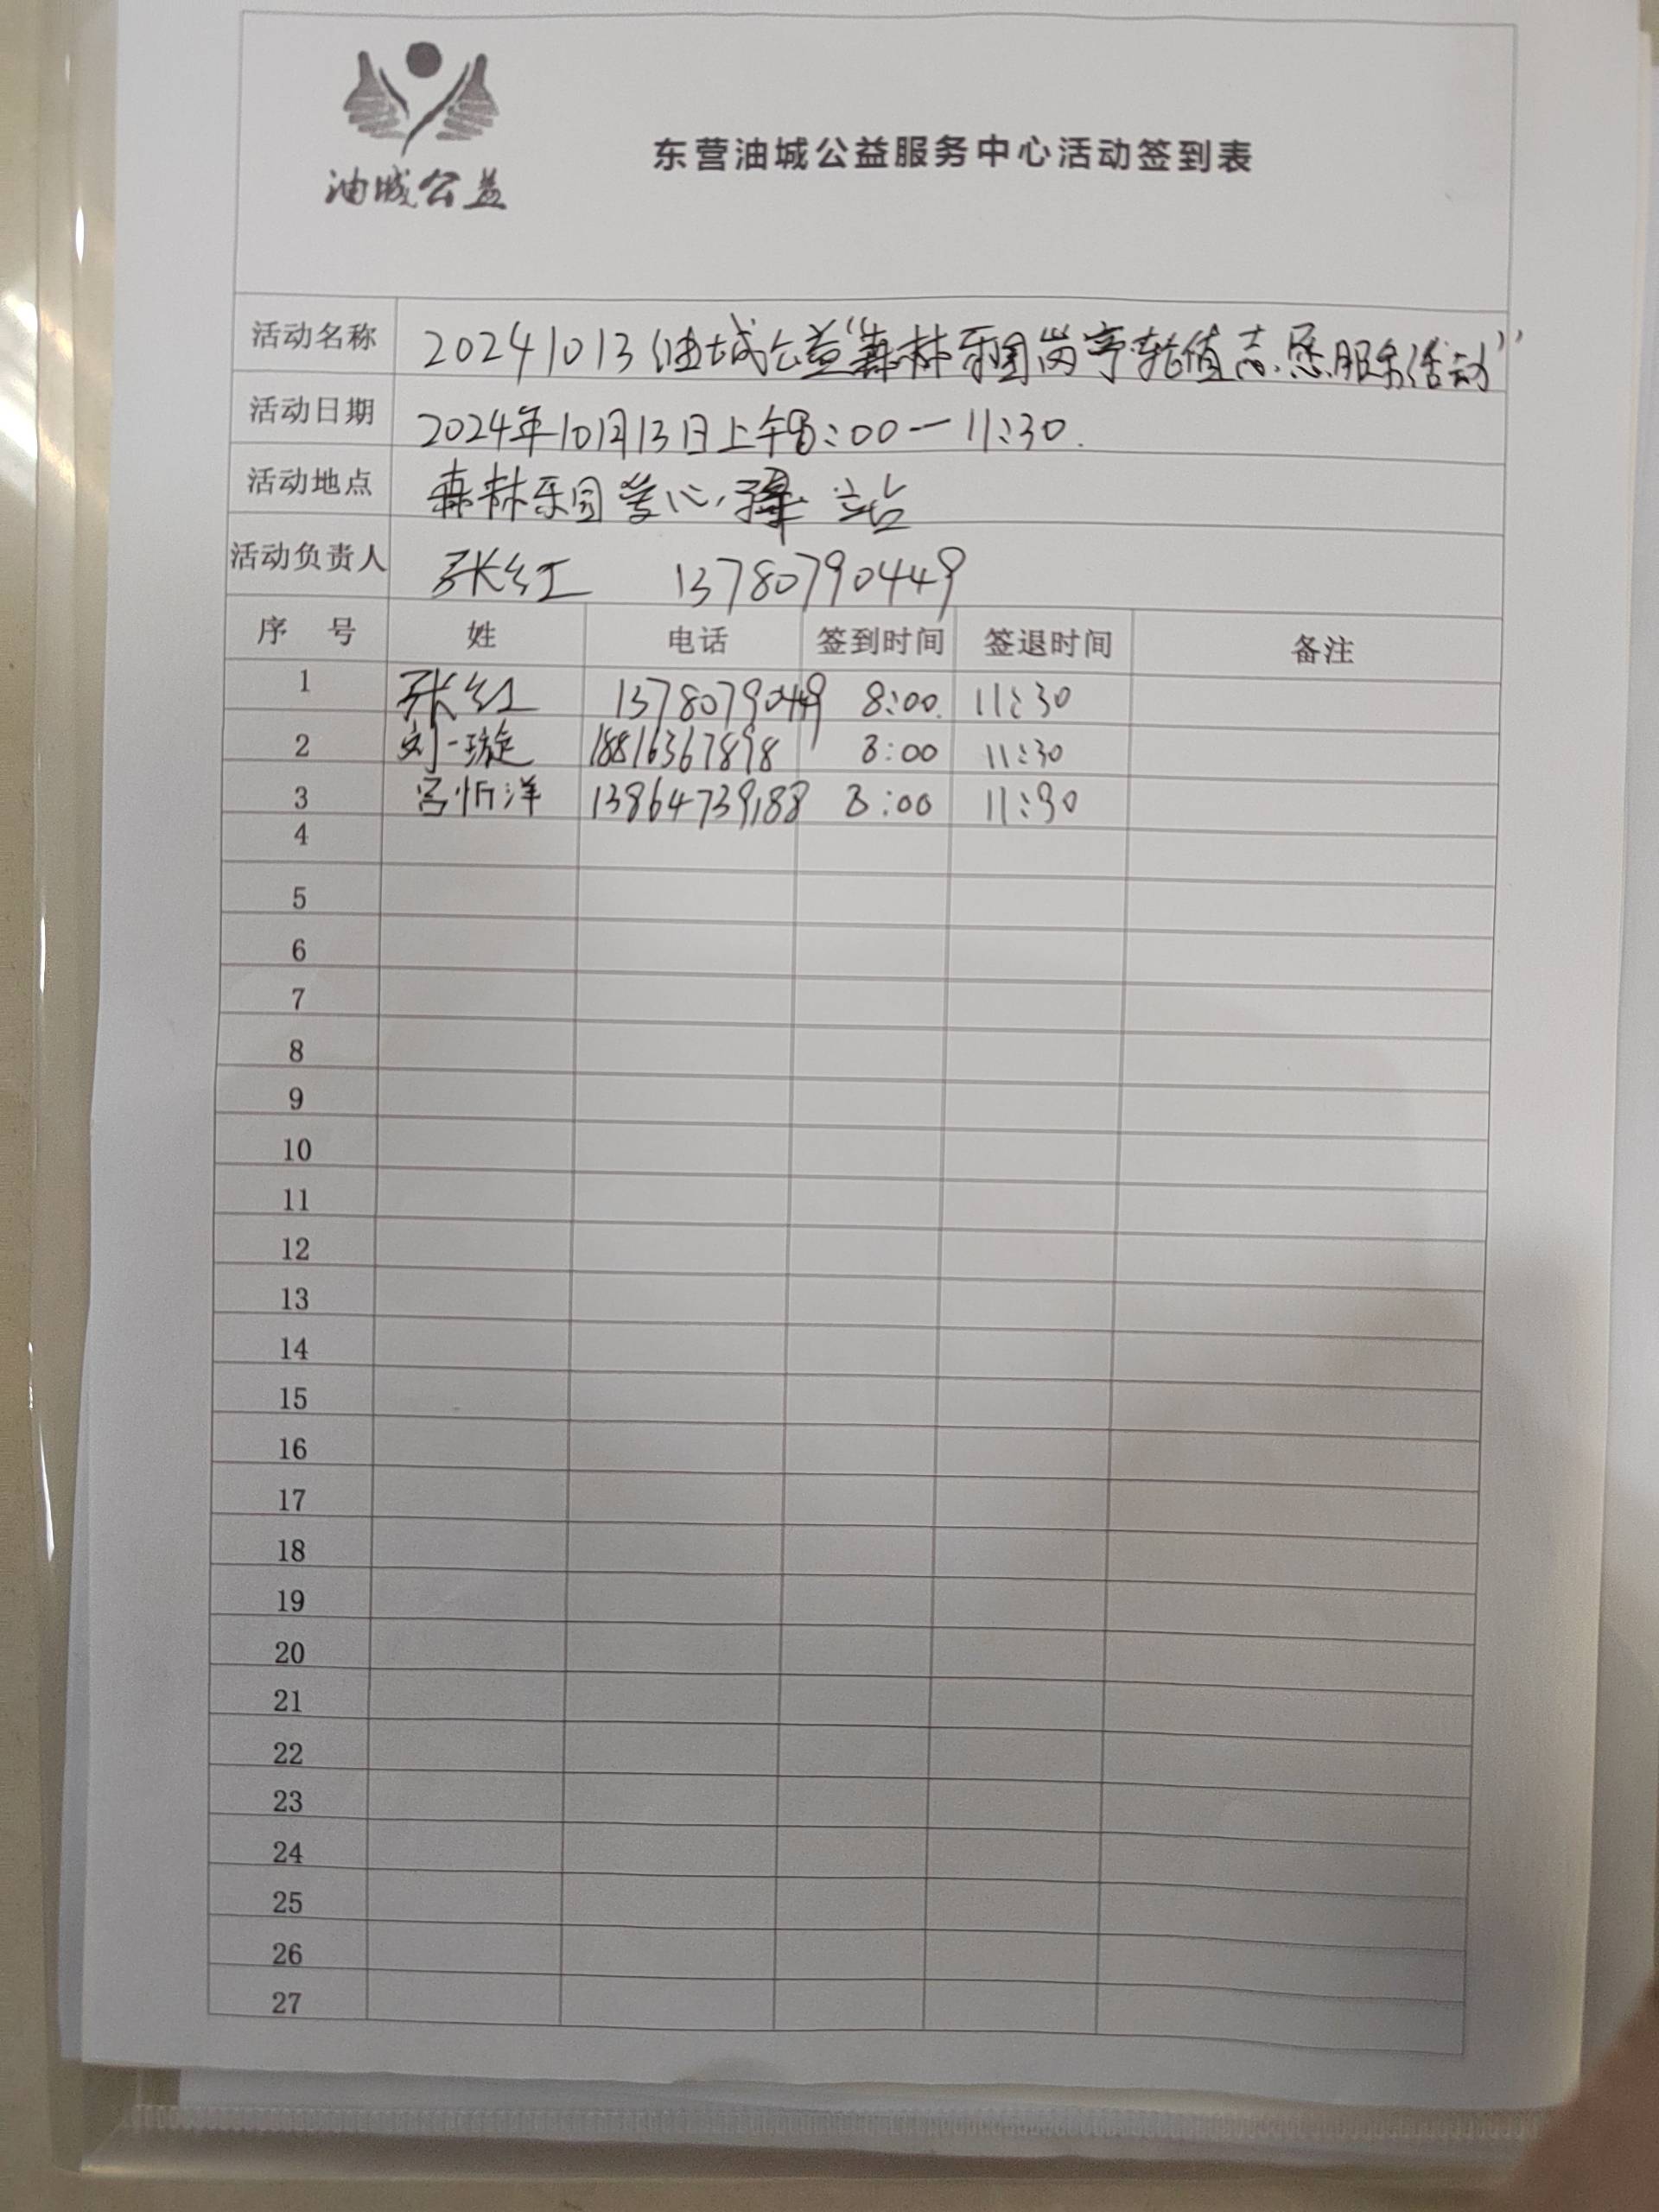 油城公益
东营油城公益服务中心活动签到表
活动名称 20241013油城公益“森林乐园岗亭轮值志愿服务活动”
活动日期 2024年10月13日上午8:00—11:30.
活动地点 森林乐园学心驿站
活动负责人 张红 13780790449
序 号 姓 电话 签到时间 签退时间 备注
1 张红 13780790449 8:00. 11:30
2 刘一璇 18816367898 8:00 11:30
3 宫忻洋 13864739188 8:00 11:30
4
5
6
7
8
9
10
11
12
13
14
15
16
17
18
19
20
21
22
23
24
25
26
27